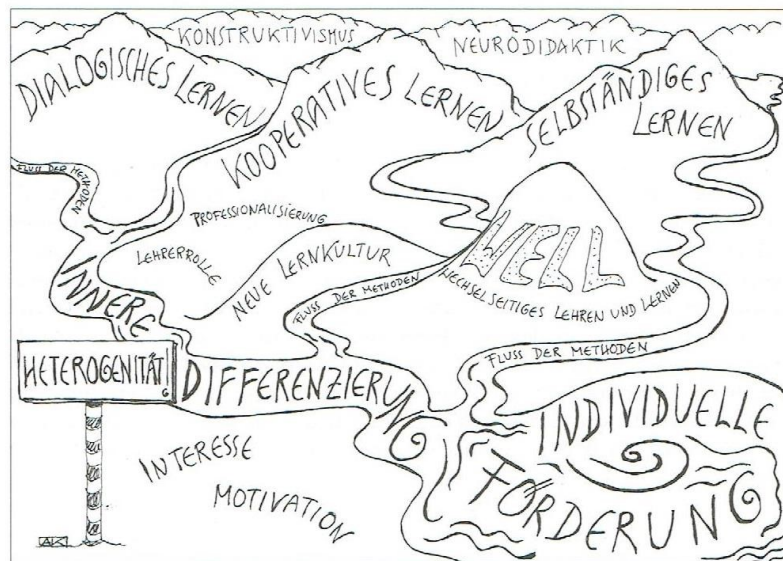 KONSTRUKTIVISMUS
NEURODIDAKTIK
DIALOGISCHES LERNEN
KOOPERATIVES LERNEN
SELBSTÄNDIGES
LERNEN
FLUSS DER METHODEN
PROFESSIONALISIERUNG
LEHRERROLLE
NEUE LERNKULTUR
WELL
WECHSELSEITIGES LEHREN UND LERNEN
FLUSS DER METHODEN
FLUSS DER METHODEN
INNERE
HETEROGENITÄT!
DIFFERENZIERUNG
INDIVIDUELLE
FÖRDERUNG
INTERESSE
MOTIVATION
AK